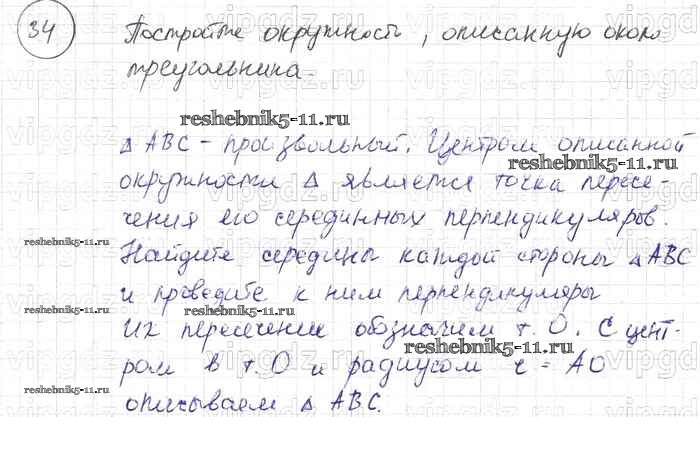 34
Постройте окружность, описанную около
треугольника.
reshebnik5-11.ru
△ ABC - произвольный. Центром описанной
reshebnik5-11.ru
окружности △ является точка пересе-
чения его серединных перпендикуляров.
reshebnik5-11.ru
Найдите середины каждой стороны △ ABC
и проведите к ним перпендикуляры
reshebnik5-11.ru
Их пересечение обозначим т. О. С цент-
reshebnik5-11.ru
ром в т. О и радиусом r = AO
reshebnik5-11.ru
описываем △ ABC.